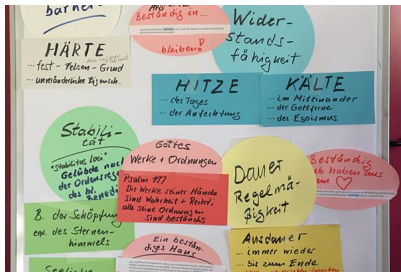 Beständig in...
bleiben!
Wider-
stands-
fähigkeit
HÄRTE
... fest - Felsen - Grund
... unveränderliche Eigensch.
HITZE
... des Tages
... der Anfechtung
KÄLTE
... im Miteinander
... der Gottferne
... des Egoismus
Stabili-
tät
"stabilitas loci"
Gelübde nach
der Ordensregel
des hl.
Gottes
Werke + Ordnungen
Psalm 111
Die Werke seiner Hände
sind Wahrheit + Recht,
alle seine Ordnungen
sind beständig
Dauer
Regelmä-
ßigkeit
Beständig
lieb haben
B. der Schöpfung
des Sternen-
himmels
Ein bestän-
diges Haus
Ausdauer
... immer wieder
... bis zum Ende
Seelische